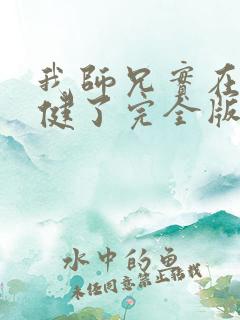 我師兄實在
健了完全版
水中的魚
未任同意禁止转載